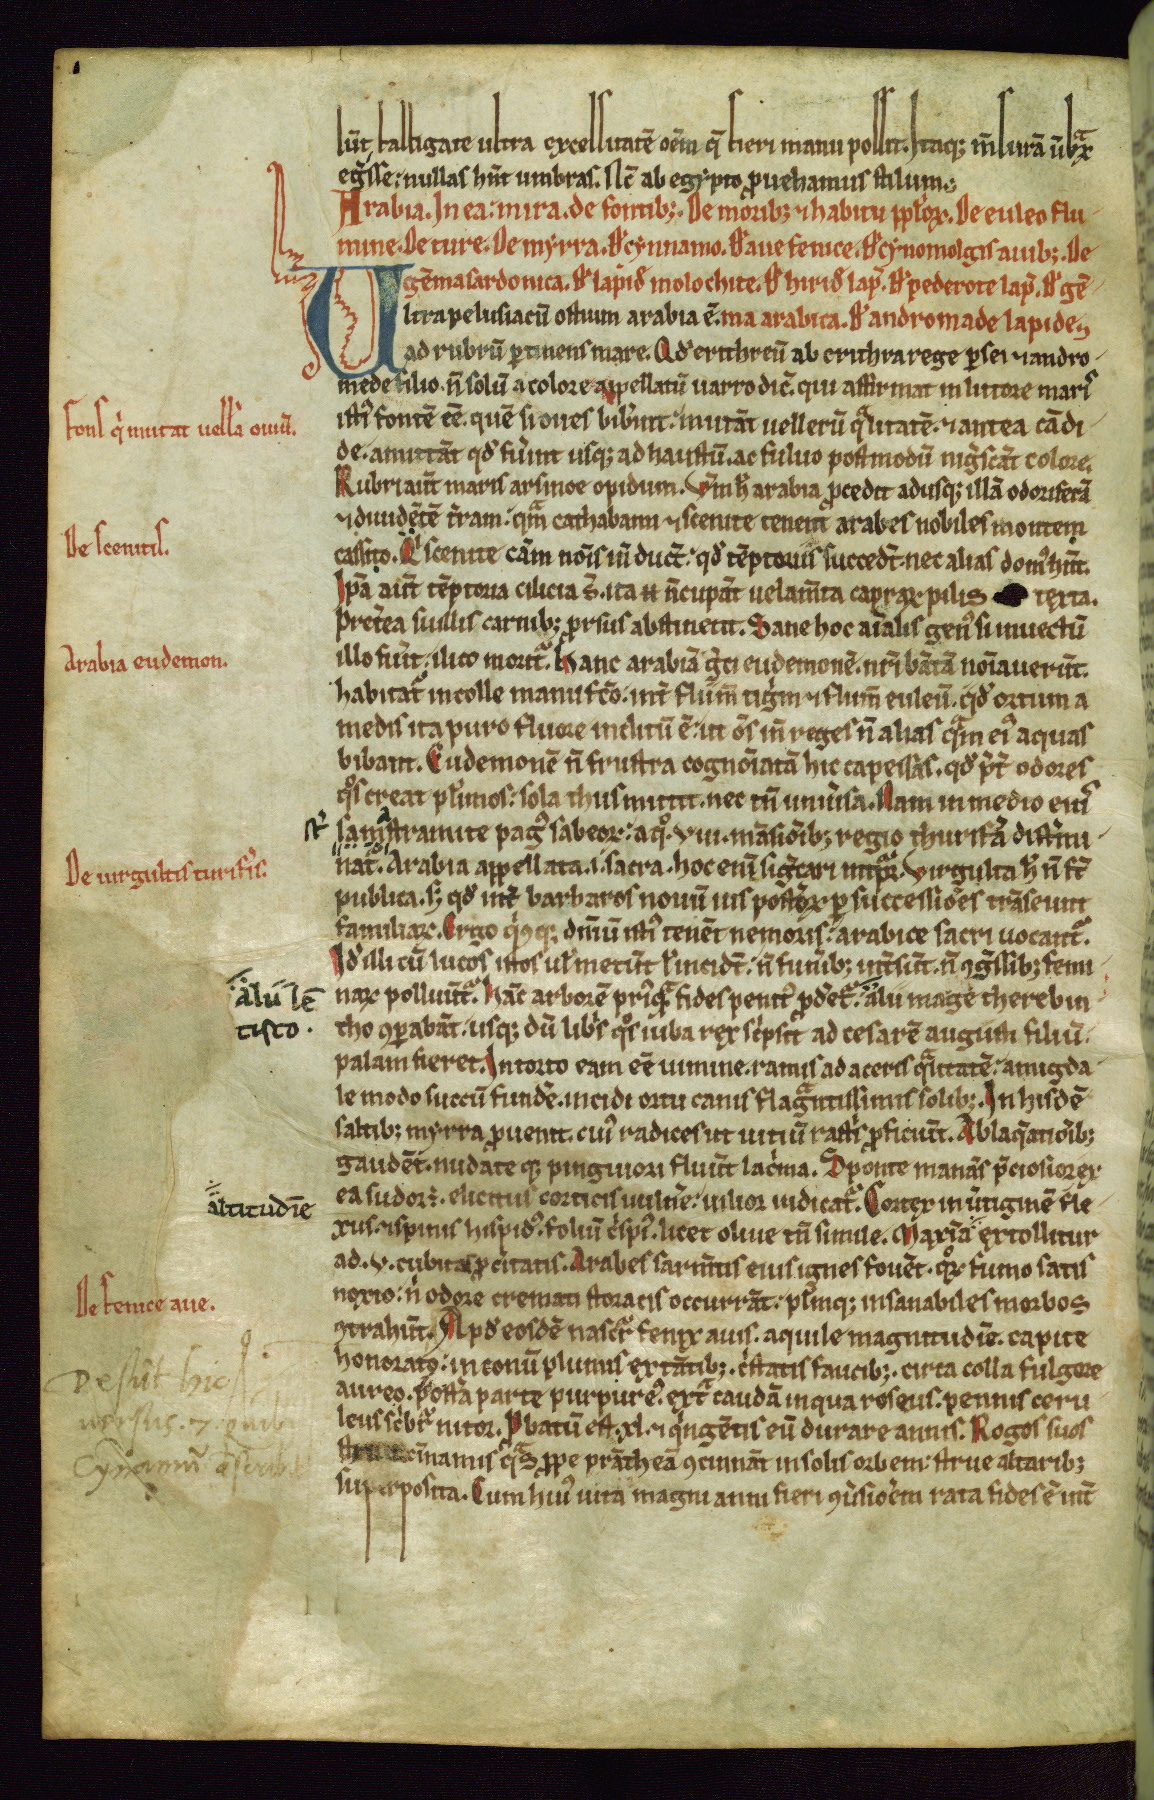 lūt, fastigate ultra excellsitatē oēm q̄ fieri manu possit. Itaq; m̄surā ūbꝝ
egͣsse: nullas hn̄t umbras. Nc̄ ab egypto ꝓuehamus stilum.
Arabia. In ea: mira. de fontib;. De morib; ⁊ habitu ppl̓oꝝ. De euleo flu
mine. De ture. De myrra. D̓ cynnamo. D̓ aue fenice. D̓ cynomolgis auib;. De
gēma sardonica. D̓ lapid̓ molochite. D̓ hirid̓ lap̓. D̓ pederote lap̓. D̓ gē
Ultra pelusiacū ostium arabia ē. ma arabica. D̓ andromade lapide.
ad rubrū ꝑtinens mare. Qd̓ erithreū ab erithra rege ꝑsei ⁊ andro
mede filio. n̄ solū a colore appellatū uarro dic̄. qui affirmat in litore maris
isti fontē eē. quē si oues bibͥnt: mutāt uellerū qͣlitatē. ⁊ antea cādi
de. amittāt qd̓ fuͥnt usq; ad haustū. ac fuluo postmodū nigͤscāt colore.
Rubri aūt maris arsinoe opidum. Vͫ h̓ arabia ꝓcedit adusq; illā odoriferā
⁊ diuidētē t̄ram: qm̄ cathabanii ⁊ scenite tenent arabes nobiles montem
cassito. Scenite cām nōis in̄ duc̄t: qd̓ tēptoriis succedt̄. nec alias domͦ hn̄t.
Ipā aūt tēptoria cilicia s̄. ita n̄cupāt uelam̄ta capraꝝ pilis texta.
Pret̄ea suillis carnib; ꝓrsus abstinent. Sane hoc aīalis genͦ si inuectū
illo fuͥt. ilico moritͬ. Hanc arabiā gͥci eudemonē. nr̄i bātā noīauerūt.
habitat̓ in colle manu fcō. int̓ flum̄ tigͥm ⁊ flum̄ euleū. qd̓ ortum a
medis ita puro fluore inclitū ē: ut ōs in̄ reges n̄ alias qͣm eiͦ aquas
bibant. Eudemonē n̄ frustra cognoīatā hic capessas. qd̓ pͭ̄ odores
qͦs creat plͥmos: sola thus mittit. nec tn̄ uniͥsa. Nam in medio eiuͥ
sunt atramite pagͦ sabeoꝝ: a qͦ. viii. māsiōib; regio thurifͣa distͥmi
nat̓. Arabia appellata. i. sacra. hoc eni sigͥcari int̓ptͬ. Virgulta h̓ n̄ st̄
publica. s; qd̓ int̄ barbaros nouū iuͥs postͤoꝝ ꝑ successiōes trāseunt
familiaꝝ. Ergo qͥcūq; dn̄iū isti tenēt nemoris: arabice sacri uocant̓.
Id̓ illi cū lucos istos ul̓ metūt l̓ incidt̄. n̄ funͥib; int̓sūt. n̄ ꝯgͤssib; femi
naꝝ polluūt̓. Hāc arborē prͥqͣ fides penitͦ pderetͬ: alii mage therebin
tho ꝯparabāt. usq; dū libͥs qͦs iuba rex scͥpsit ad cesarē augusti filiū.
palam fieret. Intorto eam eē uimine. ramis ad aceris qͣlitatē: amigda
le modo succū fundē. incidi ortu canis flagͣntissimis solib;. In hisdē
saltib; myrra ꝓuenit. cui̓ radices ut uitiū rastͥs ꝓficiūt. Ablaqͣatiōib;
gaudēt. nudate q; pinguiori fluūt lacͥma. Sponte manās pͥciosior ex
ea sudor ē. elicitus corticis uulnͤe: uilior iudicat̓. Cortex in ūtiginē fle
xus. ⁊ spinis hispidͦ. foliū cͥspiͦ. licet oliue tn̄ simile. Maxīa extollitur
ad. v. cubita ꝓceritatis. Arabes sarm̄tis eius ignes fouēt. qͦꝝ fumo satis
noxio: n̄ odore cremati storacis occurrāt: plͥmq; insanabiles morbos
ꝯtrahūt. Apd̓ eosdē nascit̓ fenix auis. aquile magnitudīe. capite
honorato: in conū plumis extātib;. cͥstatis faucib;. circa colla fulgore
aureo. postͥa parte purpureͦ. extͣ caudā in qua roseis. pennis ceru
leus scͥbit̓ nitor. Pbatū est. xl. ⁊ qͥngētis eū durare annis. Rogos suos
cīnamis qͦs ꝓpe prātheā ꝯcinnāt in solis orbem: strue altarib;
superposita. Cum huiͦ uita magni anni fieri ꝯuͥsiōem rata fides ē int̄
fons qͥ mutat uellͣa ouiū.
De scenitis.
Arabia eudemon.
De uirgultis turifͥs.
alii lē
tisco.
altitudīe
De fenice aue.
Desūt hic
uersus. 7. quib;
Cynamū